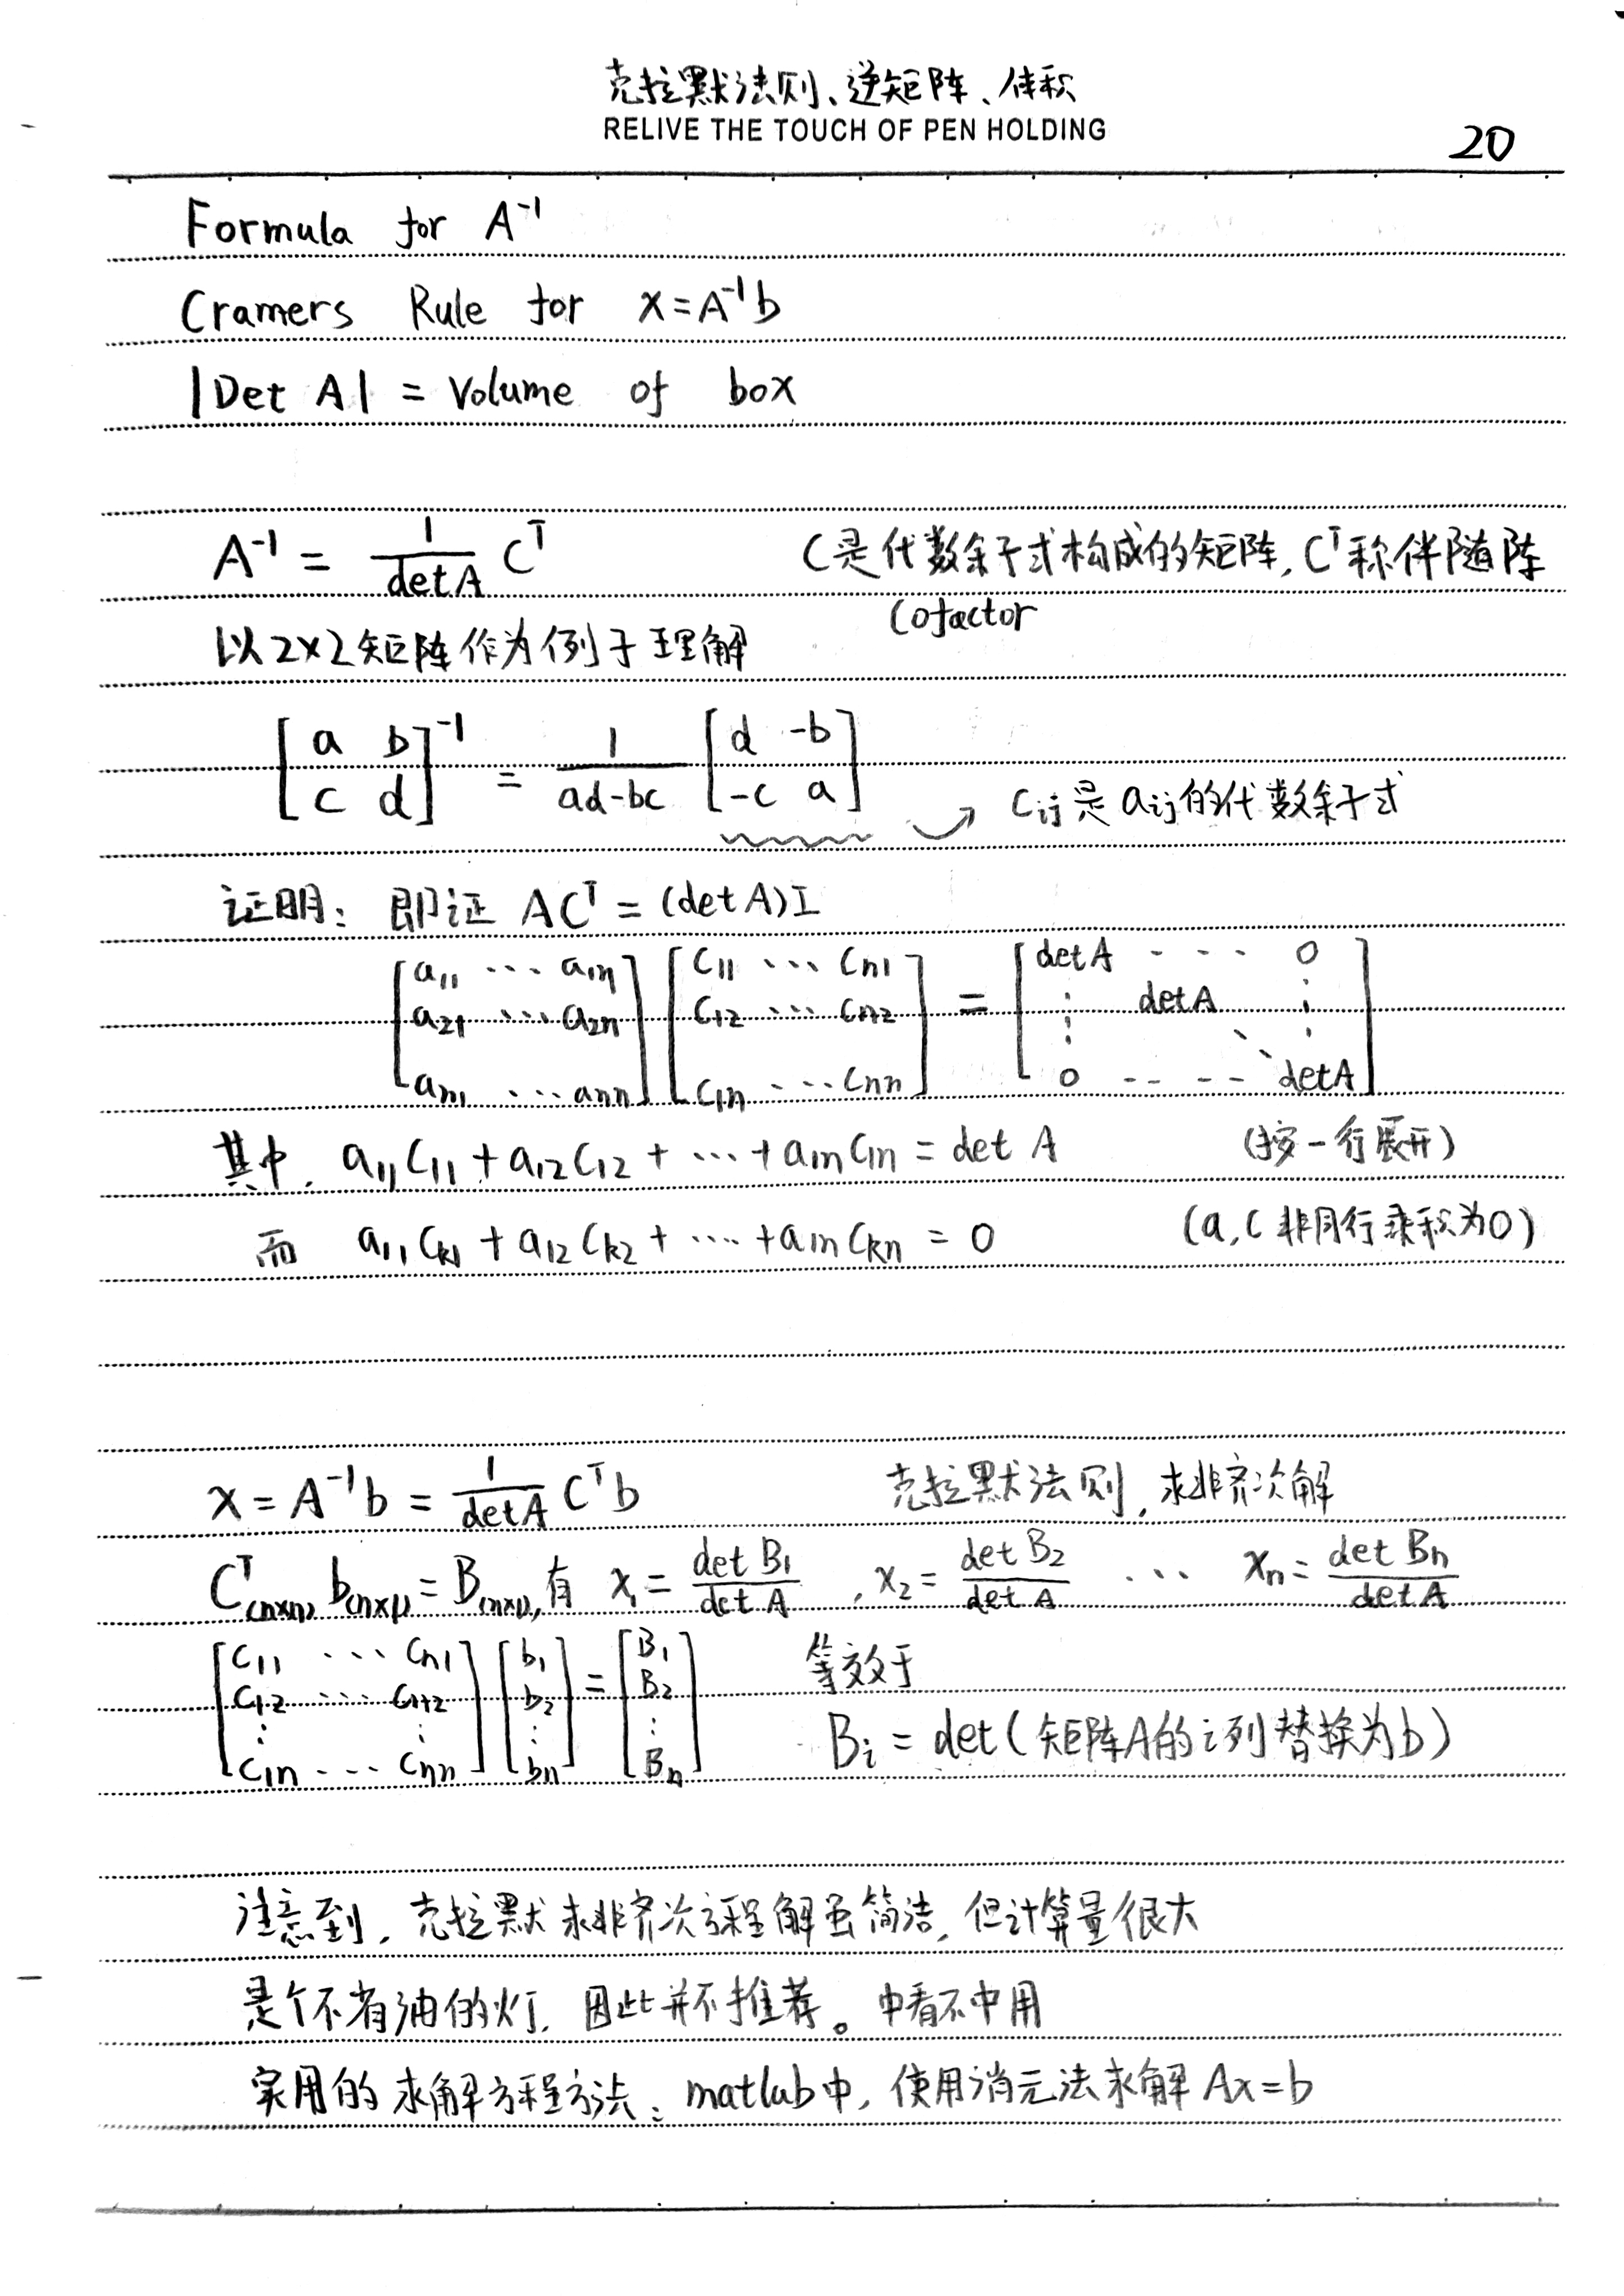 克拉默法则、逆矩阵、体积
RELIVE THE TOUCH OF PEN HOLDING
20
Formula for A⁻¹
Cramers Rule for x=A⁻¹b
|Det A| = Volume of box
A⁻¹ = 1/detA Cᵀ C是代数余子式构成的矩阵, Cᵀ称伴随阵
Cofactor
以2×2矩阵作为例子理解
[a b; c d]⁻¹ = 1/(ad-bc) [d -b; -c a] → Cij是aij的代数余子式
证明: 即证 ACᵀ = (detA)I
[a11 ⋯ a1n; a21 ⋯ a2n; an1 ⋯ ann] [C11 ⋯ Cn1; C12 ⋯ Cn2; C1n ⋯ Cnn] = [detA ⋯ 0; ⋮ detA ⋮; 0 ⋯ detA]
其中, a11C11 + a12C12 + ⋯ + a1nC1n = det A (按一行展开)
而 a11Ck1 + a12Ck2 + ⋯ + a1nCkn = 0 (a,C非同行乘积为0)
x = A⁻¹b = 1/detA Cᵀb 克拉默法则, 求非齐次解
Cᵀ(n×n) b(n×1) = B(n×1), 有 x1 = det B1/det A , x2 = det B2/det A ⋯ xn = det Bn/det A
[C11 ⋯ Cn1; C12 ⋯ Cn2; ⋮ ⋮; C1n ⋯ Cnn] [b1; b2; ⋮; bn] = [B1; B2; ⋮; Bn] 等效于
Bi = det(矩阵A的i列替换为b)
注意到, 克拉默求非齐次方程解虽简洁, 但计算量很大
是个不省油的灯, 因此并不推荐。中看不中用
实用的求解方程方法: matlab中, 使用消元法求解 Ax=b